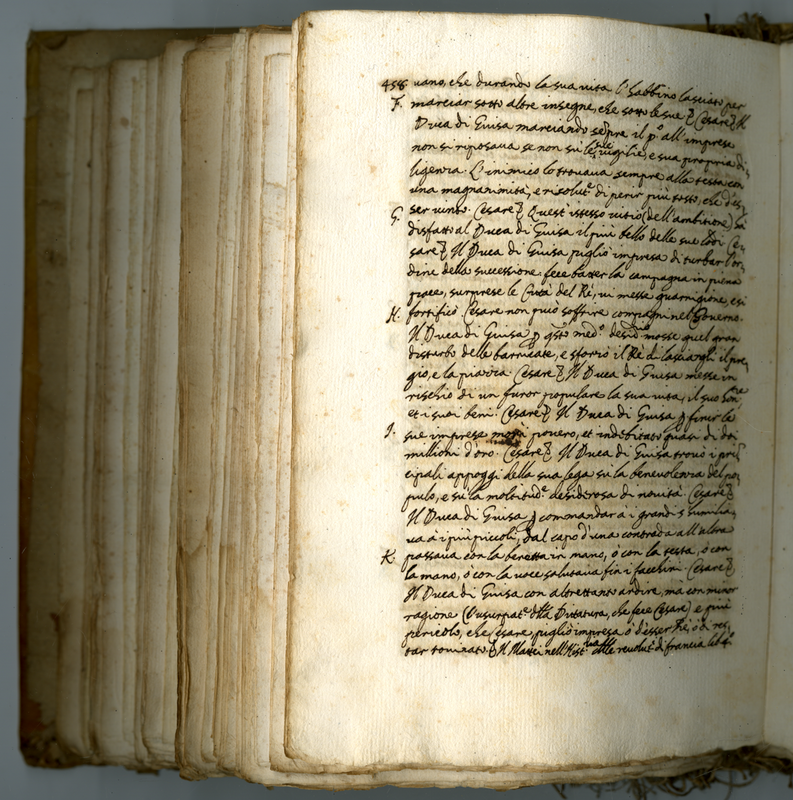 458 uano, che durando la sua vita l'habbino lasciato per
F. marciar sotto altre insegne, che sotto le sue. Cesare Il
Duca di Guisa marciando sẽpre il p.º all'imprese
non si riposaua se non sù le sue vigilie, e sua propria di=
ligenza. L'inimico lo trouaua sempre alla testa con
una magnanimità, e risolut.e di perir più tosto, che d'es=
G. ser uinto. Cesare Quest'istesso uitio (dell'ambitione) hà
disfatto al Duca di Guisa il più bello delle sue lodi Ce=
sare Il Duca di Guisa pigliò impresa di turbar l'or=
dine della successione. fece batter la campagna in piena
pace, surprese le Città del Rè, ui messe guarnigione, e si
H. fortificò. Cesare non può soffrire compagni nel Gouerno.
Il Duca di Guisa p qsto med.º desid.º mosse quel gran
disturbo delle barricate, e sforzò il Rè di lasciargli il pre=
gio, e la piazza. Cesare Il Duca di Guisa messe in
rischio di un furor populare la sua uita, il suo hon.re
et i suoi beni. Cesare Il Duca di Guisa p finir le
I. sue imprese morì pouero, et indebitato quasi di doi
millioni d'oro. Cesare Il Duca di Guisa trouò i prin=
cipali appoggi della sua lega sù la beneuolenza del po=
pulo, e sù la moltitud.e desiderosa di nouità. Cesare
Il Duca di Guisa p commandar à i grandi s'humilia=
ua à i più piccoli, dal capo d'una contrada all'altra
K. passaua con la beretta in mano, ò con la testa, ò con
la mano, ò con la uoce salutaua fin i facchini. Cesare
Il Duca di Guisa con altrettanto ardire, mà con minor
ragione (l'usurpat.e della Dittatura, che fece Cesare) e più
pericolo, che Cesare pigliò impresa ò d'esser Rè, ò di res=
tar rouinato. Il Mattei nell'Hist. delle reuolut. di francia lib. 4.